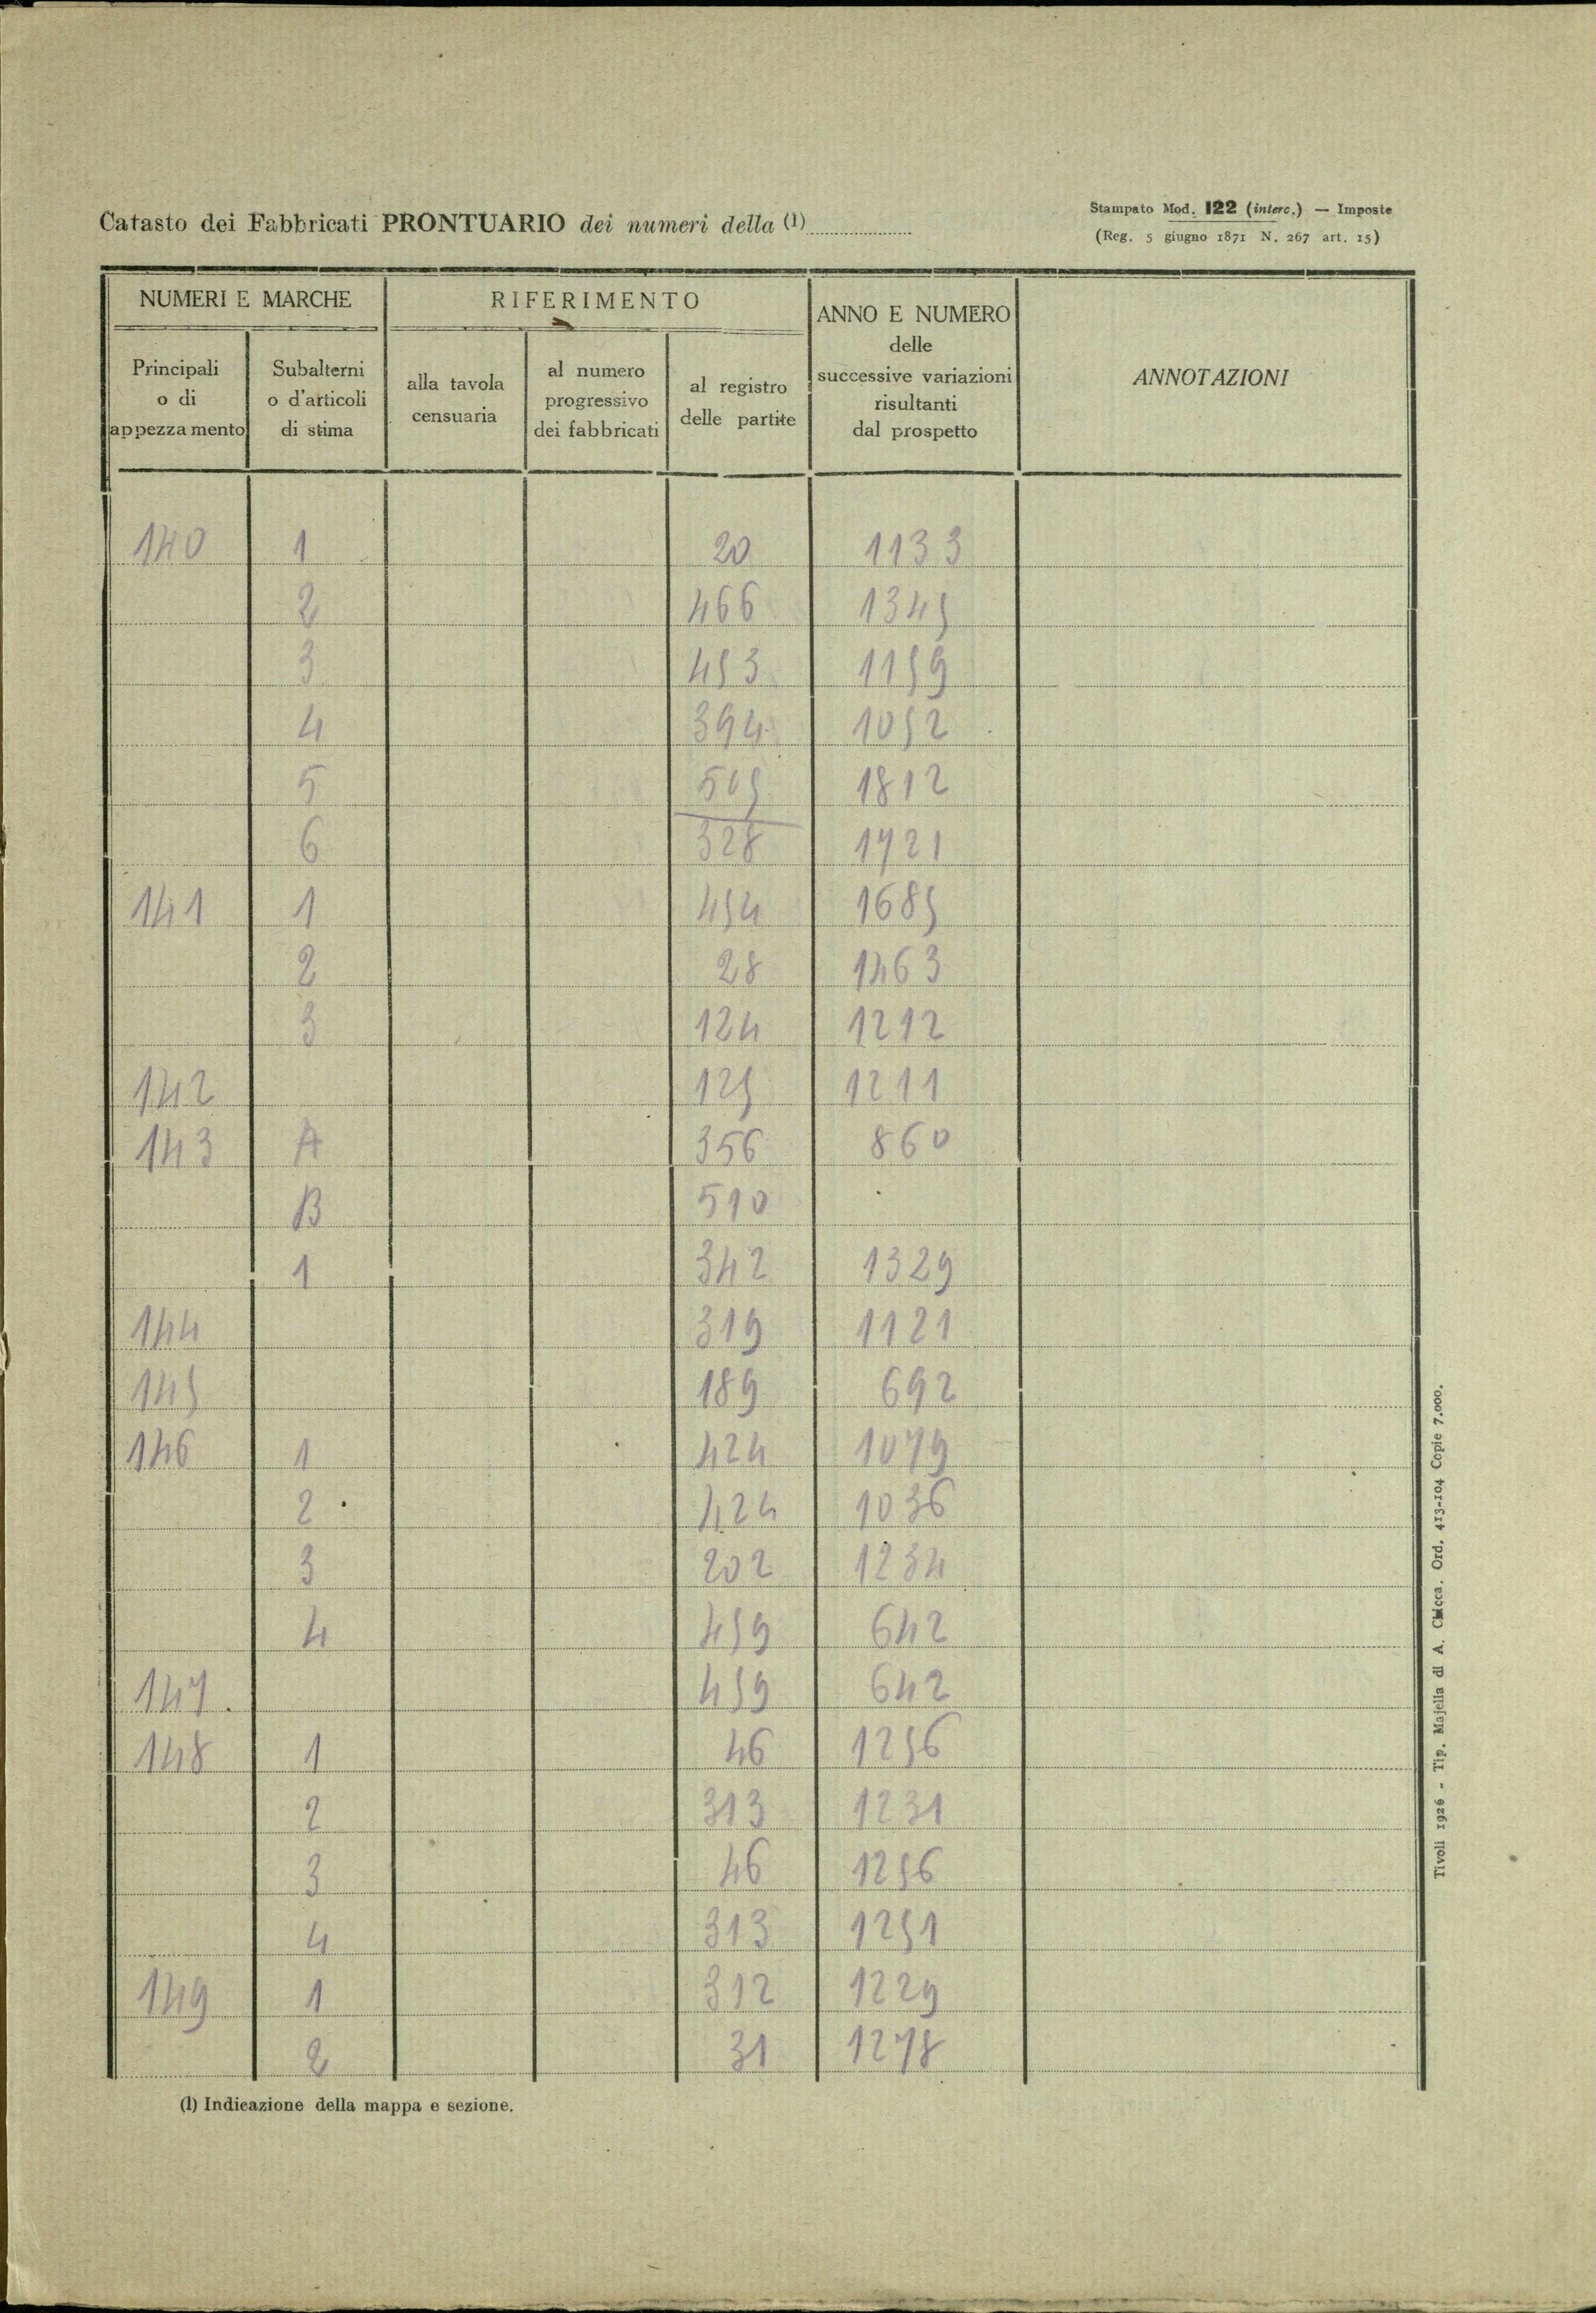 Catasto dei Fabbricati PRONTUARIO dei numeri della (1)
Stampato Mod. 122 (interc.) — Imposte
(Reg. 5 giugno 1871 N. 267 art. 15)
NUMERI E MARCHE
RIFERIMENTO
ANNO E NUMERO
delle
successive variazioni
risultanti
dal prospetto
ANNOTAZIONI
Principali
o di
appezzamento
Subalterni
o d'articoli
di stima
alla tavola
censuaria
al numero
progressivo
dei fabbricati
al registro
delle partite
140 1 20 1133
2 466 1345
3 453 1159
4 394 1052
5 505 1812
6 328 1721
141 1 454 1685
2 28 1463
3 124 1212
142 125 1211
143 A 356 860
B 510
1 342 1329
144 319 1121
145 189 692
146 1 424 1079
2 424 1036
3 202 1234
4 459 642
147 459 642
148 1 46 1256
2 313 1231
3 46 1256
4 313 1251
149 1 312 1229
2 31 1278
(1) Indicazione della mappa e sezione.
Tivoli 1926 - Tip. Majella di A. Chicca. Ord. 413-104 Copie 7.000.